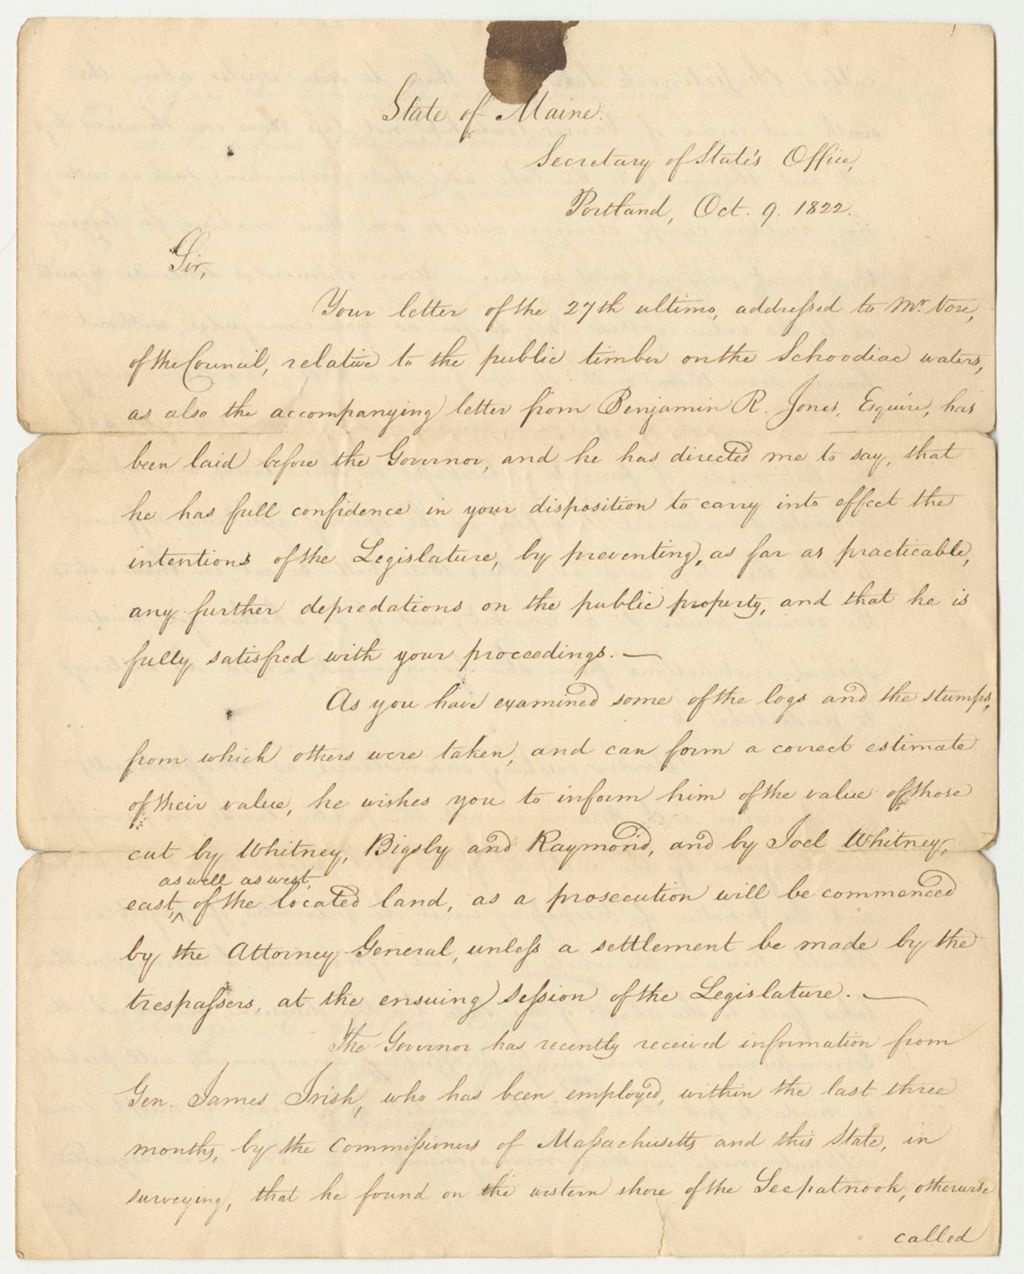 State of Maine.
Secretary of State's Office,
Portland, Oct. 9. 1822.
Sir,
Your letter of the 27th ultimo, addressed to Mr. Vose,
of the Council, relative to the public timber on the Schoodiac waters,
as also the accompanying letter from Benjamin R. Jones, Esquire, has
been laid before the Governor, and he has directed me to say, that
he has full confidence in your disposition to carry into effect the
intentions of the Legislature, by preventing, as far as practicable,
any further depredations on the public property, and that he is
fully satisfied with your proceedings. —
As you have examined some of the logs and the stumps,
from which others were taken, and can form a correct estimate
of their value, he wishes you to inform him of the value of those
cut by Whitney, Bigsby and Raymond, and by Joel Whitney,
as well as west,
east, ^ of the located land, as a prosecution will be commenced
by the Attorney General, unless a settlement be made by the
trespassers, at the ensuing Session of the Legislature. —
The Governor has recently received information from
Gen. James Irish, who has been employed, within the last three
months, by the Commissioners of Massachusetts and this State, in
surveying, that he found on the western shore of the Seepatnook, otherwise
called